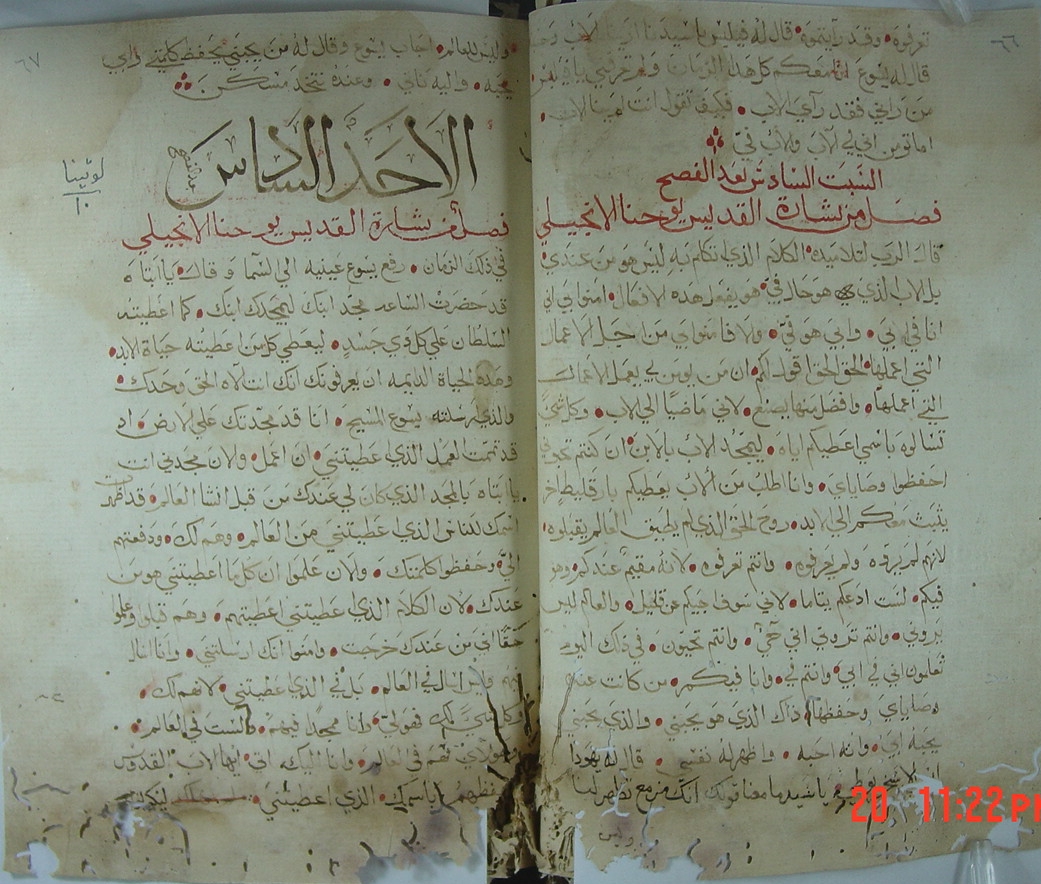 ٦٦
تعرفوه • وقد رايتموه • قال له فيلبس يا سيدنا ارينا الاب وحسبنا
قال له يسوع انا معكم كل هذا الزمان ولم تعرفني يا فيلبس
من رآني فقد رآي الاب • فكيف تقول انت ارينا الاب •
اما تومن اني في الاب والاب فيّ
السبت السادس بعد الفصح
فصل من بشارة القديس يوحنا الانجيلي
قال الرب لتلاميذه الكلام الذي اتكلم به ليس هو من عندي
بل الاب الذي هو حال فيّ هو يفعل هذه الافعال • امنوا بي اني
انا في ابي • وابي هو فيّ • والا فامنوا بي من اجل الاعمال
التي اعملها الحق الحق اقول لكم ان من يومن بي يعمل الاعمال
التي اعملها • وافضل منها يصنع • لاني ماضيًا الي الاب • وكل شي
تسالوه باسمي اعطيكم اياه • ليمجد الاب بالابن ان كنتم تحبوني
احفظوا وصاياي • وانا اطلب من الاب يعطيكم بارقليط اخر
يثبت معكم الي الابد • روح الحق الذي لم يطيق العالم يقبلوه •
لانهم لم يروه ولم يعرفوه • وانتم تعرفوه • لانه مقيم عندكم وهو
فيكم • لست ادعكم يتاما • لاني سوف اجيكم عن قليل • والعالم ليس
يروني • وانتم تروني اني حيّ • وانتم تحيون • في ذلك اليوم
تعلمون اني في ابي • وانتم فيّ • وانا فيكم • من كانت عنده
وصاياي وحفظها ذاك الذي هو يحبني • والذي يحبني
يحبه ابي • وانا احبه • واظهر له نفسي • قال له يهوذا
ليس الاسخريوطي يا سيد ما معنا قولك انك مزمع تظهر لنا
وليس
٦٧
وليس للعالم • اجاب يسوع وقال له من يحبني يحفظ كلمتي وابي
يحبه • واليه ناتي • وعنده نتخذ مسكن
الاحد السادس
بعد الفصح
لوثينا
١٠
فصل من بشارة القديس يوحنا الانجيلي
في ذلك الزمان • رفع يسوع عينيه الي السما وقال • يا ابتاه
قد حضرت الساعه مجد ابنك ليمجدك ابنك • كما اعطيته
السلطان علي كل ذي جسد • ليعطي كل من اعطيته حياة الابد •
وهذه الحياة الدايمه ان يعرفونك انك انت الاه الحق وحدك •
والذي ارسلته يسوع المسيح • انا قد مجدتك علي الارض • اد
قد تممت العمل الذي اعطيتني • ان اعمل • والان مجدني انت
يا ابتاه بالمجد الذي كان لي عندك من قبل انشا العالم • قد اظهرت
اسمك للناس الذي اعطيتني من العالم • وهم لك • ودفعتهم
اليّ • وحفظوا كلمتك • والان علموا ان كل ما اعطيتني هو من
عندك • لان الكلام الذي اعطيتني اعطيتهم • وهم قبلوا وعلموا
حقًا اني من عندك خرجت • وامنوا انك ارسلتني • وانا اسال
فيهم وليس اسال في العالم • بل في الذي اعطيتني • لانهم لك •
وكل شي لك فهو لي • وانا ممجدًا فيهم • ولست في العالم •
وهولاي هم في العالم • وانا اليك اتي • ايها الاب القدوس
احفظهم باسمك الذي اعطيتني • ليكونو